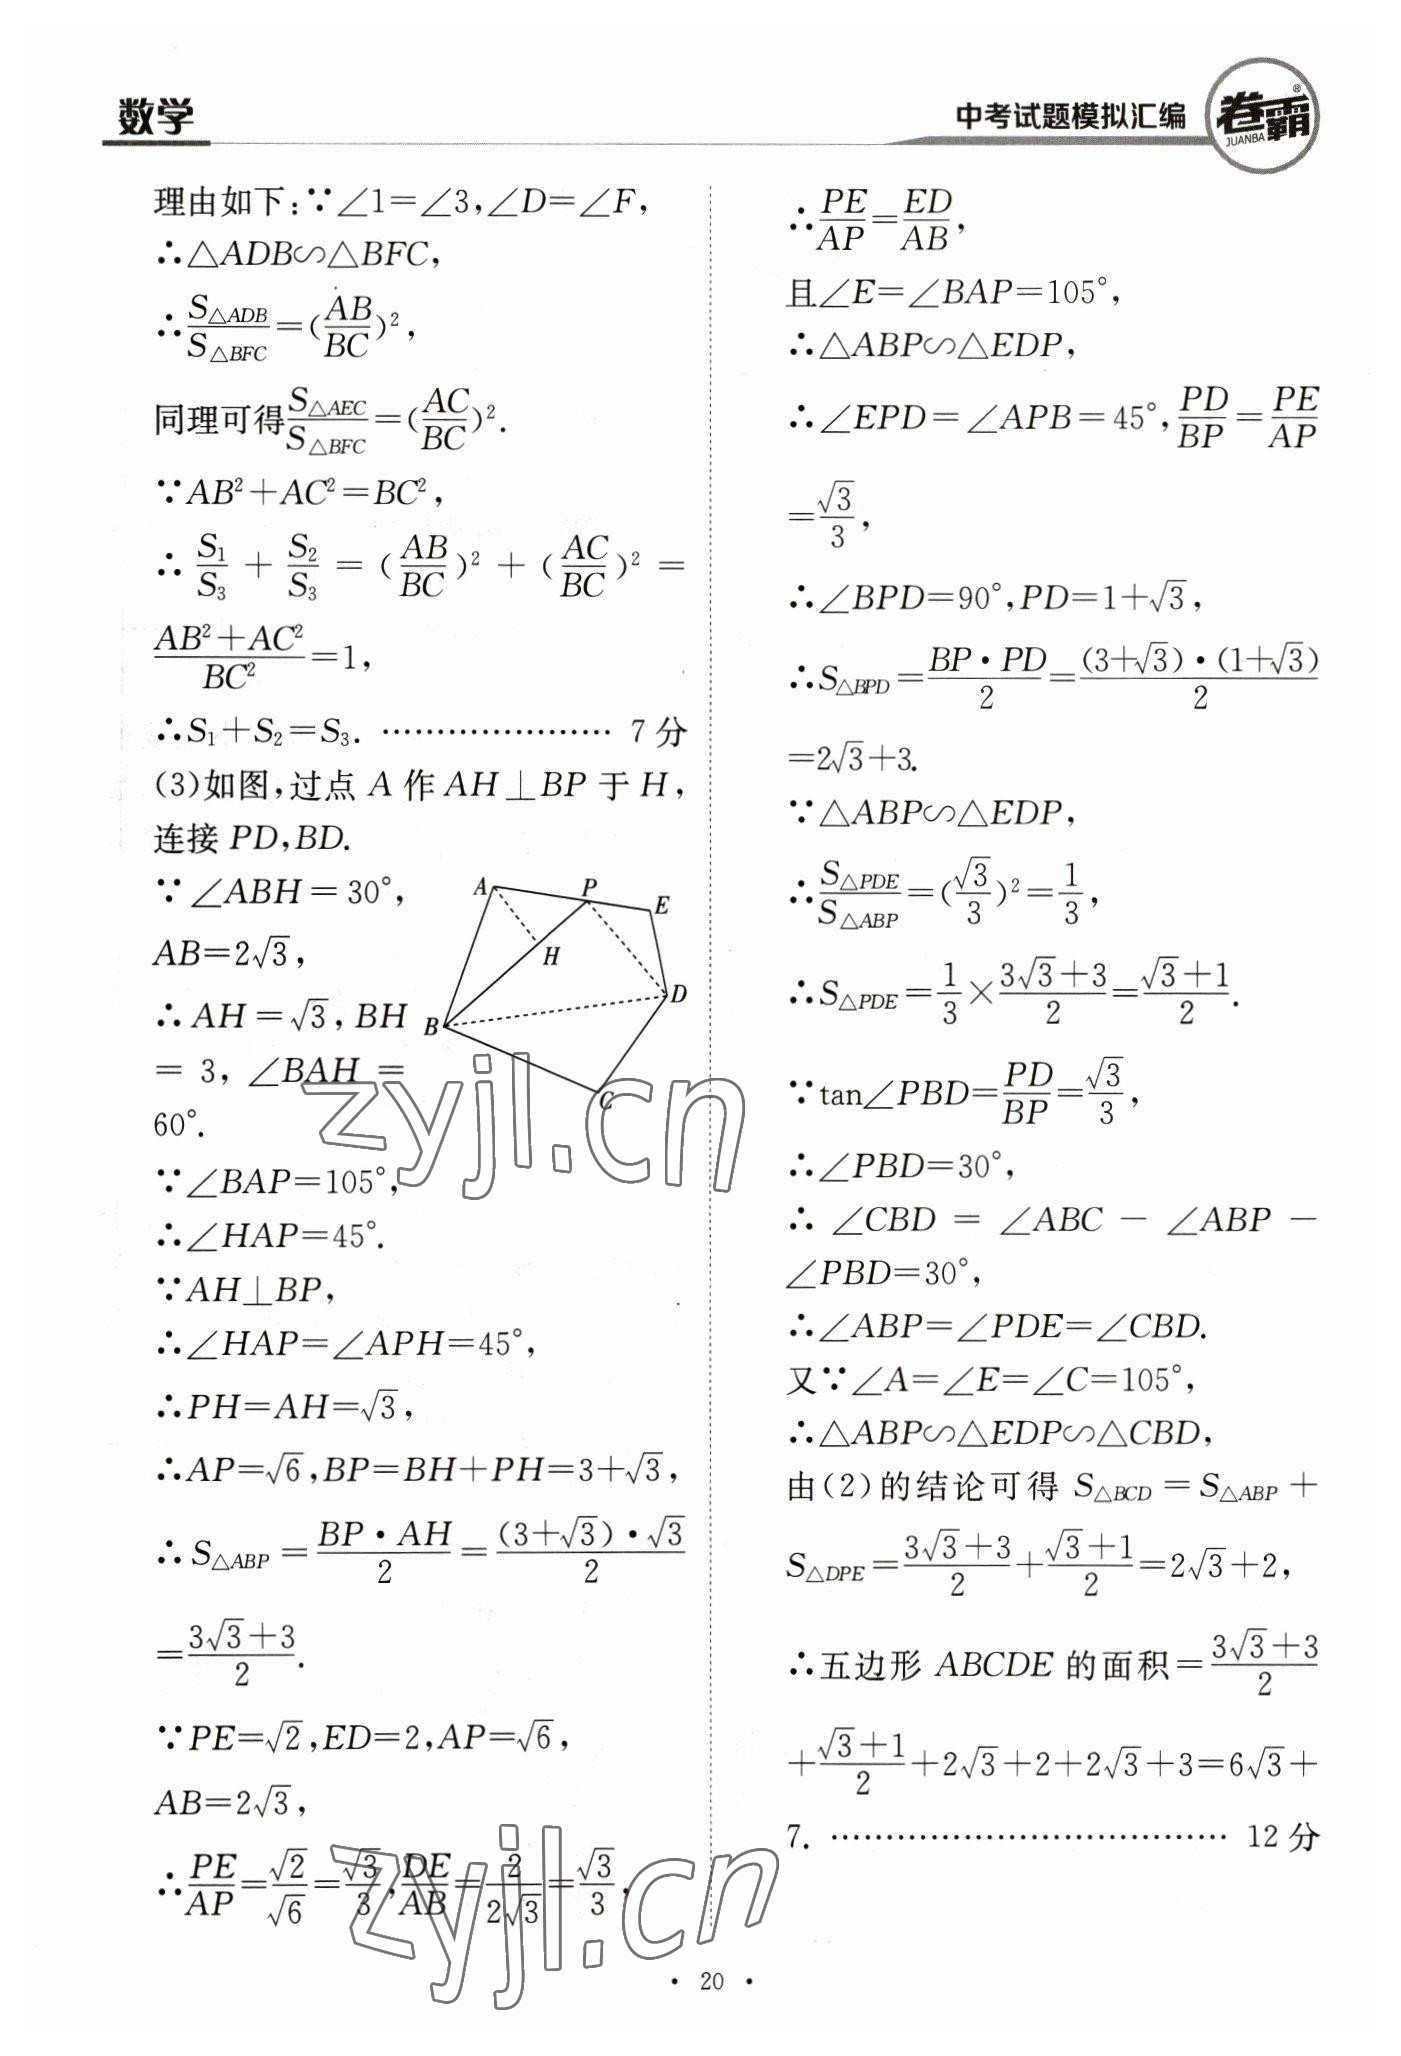 数学
中考试题模拟汇编
卷霸®
JUANBA
理由如下:∵∠1=∠3,∠D=∠F,
∴△ADB∽△BFC,
∴S△ADB/S△BFC=(AB/BC)²,
同理可得S△AEC/S△BFC=(AC/BC)².
∵AB²+AC²=BC²,
∴S₁/S₃+S₂/S₃=(AB/BC)²+(AC/BC)²=
(AB²+AC²)/BC²=1,
∴S₁+S₂=S₃. ………………… 7分
(3)如图,过点A作AH⊥BP于H,
连接PD,BD.
∵∠ABH=30°,
AB=2√3,
∴AH=√3,BH
=3,∠BAH=
60°.
A
P
E
H
D
B
C
∵∠BAP=105°,
∴∠HAP=45°.
∵AH⊥BP,
∴∠HAP=∠APH=45°,
∴PH=AH=√3,
∴AP=√6,BP=BH+PH=3+√3,
∴S△ABP=BP·AH/2=(3+√3)·√3/2
=(3√3+3)/2.
∵PE=√2,ED=2,AP=√6,
AB=2√3,
∴PE/AP=√2/√6=√3/3,DE/AB=2/2√3=√3/3,
∴PE/AP=ED/AB,
且∠E=∠BAP=105°,
∴△ABP∽△EDP,
∴∠EPD=∠APB=45°,PD/BP=PE/AP
=√3/3,
∴∠BPD=90°,PD=1+√3,
∴S△BPD=BP·PD/2=(3+√3)·(1+√3)/2
=2√3+3.
∵△ABP∽△EDP,
∴S△PDE/S△ABP=(√3/3)²=1/3,
∴S△PDE=1/3×(3√3+3)/2=(√3+1)/2.
∵tan∠PBD=PD/BP=√3/3,
∴∠PBD=30°,
∴∠CBD=∠ABC-∠ABP-
∠PBD=30°,
∴∠ABP=∠PDE=∠CBD.
又∵∠A=∠E=∠C=105°,
∴△ABP∽△EDP∽△CBD,
由(2)的结论可得S△BCD=S△ABP+
S△DPE=(3√3+3)/2+(√3+1)/2=2√3+2,
∴五边形ABCDE的面积=(3√3+3)/2
+(√3+1)/2+2√3+2+2√3+3=6√3+
7. ……………………………… 12分
zyjl.cn
zyjl.cn
· 20 ·